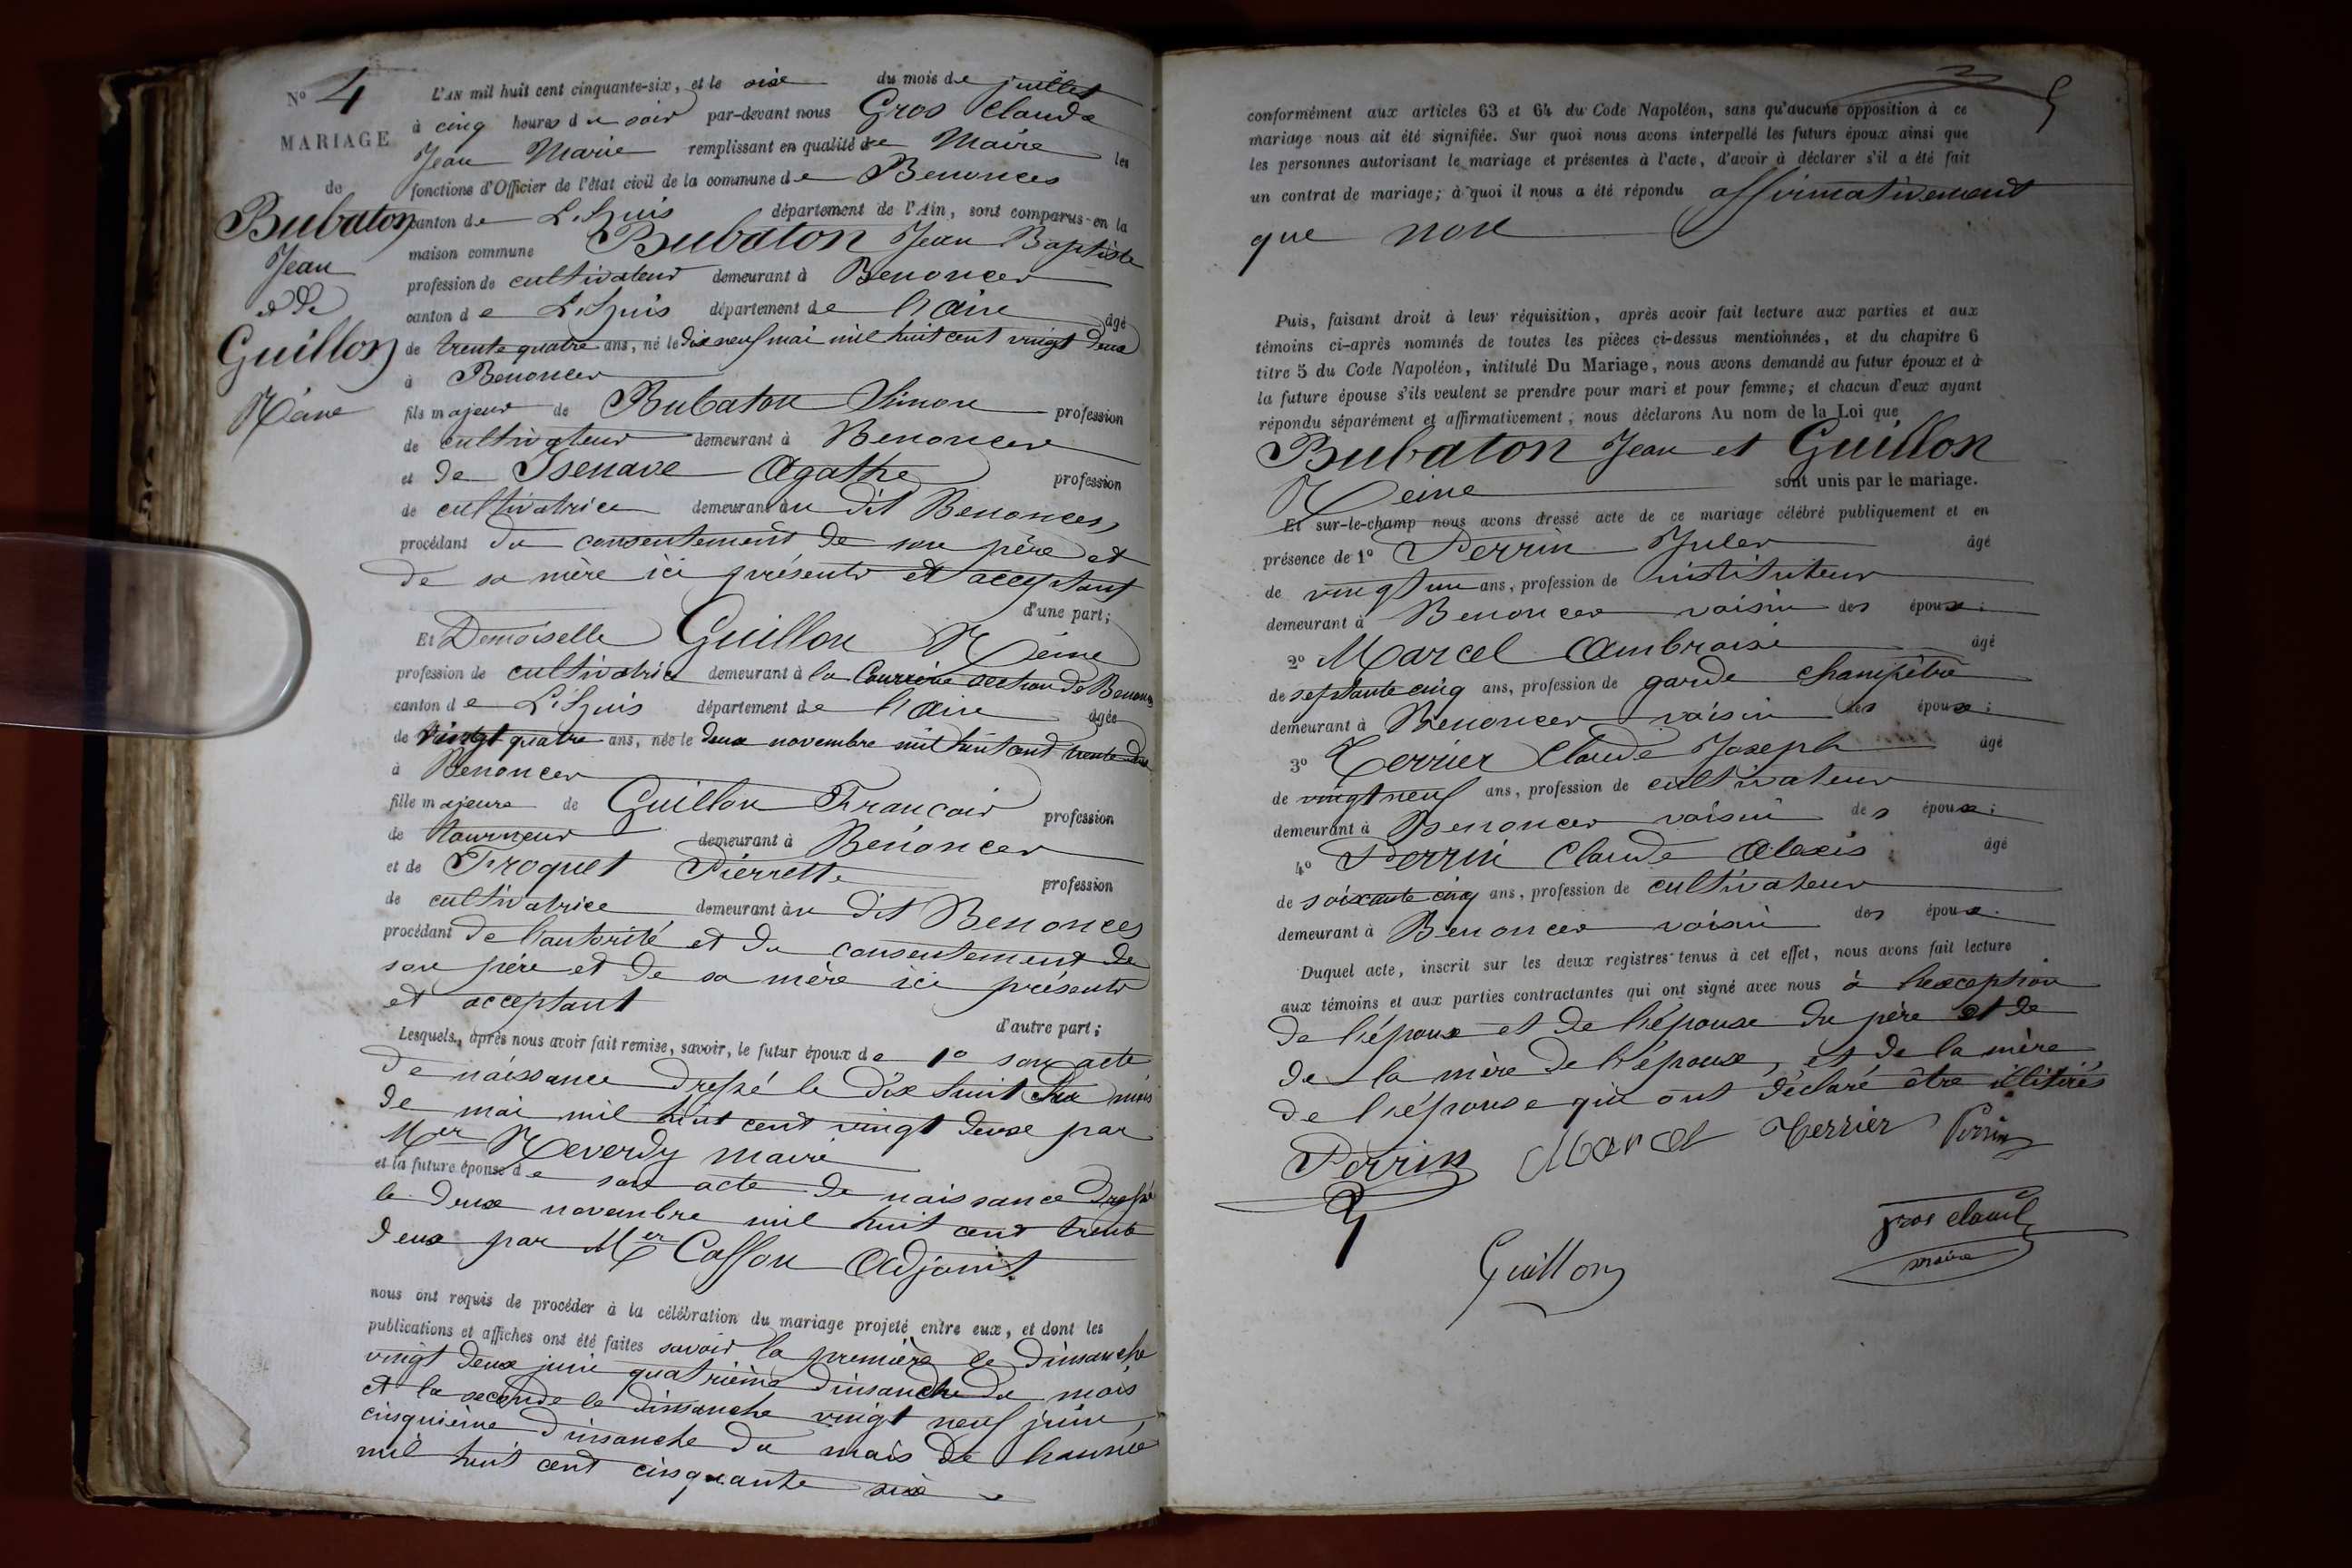 N° 4
MARIAGE
de
Bubaton
Jean
et de
Guillon
Reine
L'AN mil huit cent cinquante-six, et le six du mois de juillet
à cinq heures du soir par-devant nous Gros Claude
Jean Marie remplissant en qualité de Maire les
fonctions d'Officier de l'état civil de la commune de Benonces
canton de L'huis département de l'Ain, sont comparus en la
maison commune Bubaton Jean Baptiste
profession de cultivateur demeurant à Benonces
canton de L'huis département de l'ain âgé
de trente quatre ans, né le dix neuf mai mil huit cent vingt deux
à Benonces
fils majeur de Bubaton Simon profession
de cultivateur demeurant à Benonces
et de Agathe profession
de cultivatrice demeurant au dit Benonces
procédant du consentement de son père et
de sa mère ici présents et acceptant
d'une part;
Et Demoiselle Guillon Reine
profession de cultivatrice demeurant à la section de Benonces
canton de L'huis département de l'ain âgée
de vingt quatre ans, née le deux novembre mil huit cent trente deux
à Benonces
fille majeure de Guillon Francois profession
de tourneur demeurant à Benonces
et de Froquet Pierrette profession
de cultivatrice demeurant au dit Benonces
procédant de l'autorité et du consentement de
son père et de sa mère ici présents
et acceptant
d'autre part;
Lesquels, après nous avoir fait remise, savoir, le futur époux de 1° son acte
de naissance dressé le dix huit du mois
de mai mil huit cent vingt deux par
Mer Reverdy maire
et la future épouse de son acte de naissance dressé
le deux novembre mil huit cent trente
deux par Mer Casson Adjoint
nous ont requis de procéder à la célébration du mariage projeté entre eux, et dont les
publications et affiches ont été faites savoir la première le dimanche
vingt deux juin quatrième dimanche du mois
et la seconde le dimanche vingt neuf juin,
cinquième dimanche du mois de l'année
mil huit cent cinquante six
conformément aux articles 63 et 64 du Code Napoléon, sans qu'aucune opposition à ce
mariage nous ait été signifiée. Sur quoi nous avons interpellé les futurs époux ainsi que
les personnes autorisant le mariage et présentes à l'acte, d'avoir à déclarer s'il a été fait
un contrat de mariage; à quoi il nous a été répondu affirmativement
que non
Puis, faisant droit à leur réquisition, après avoir fait lecture aux parties et aux
témoins ci-après nommés de toutes les pièces ci-dessus mentionnées, et du chapitre 6
titre 5 du Code Napoléon, intitulé Du Mariage, nous avons demandé au futur époux et à
la future épouse s'ils veulent se prendre pour mari et pour femme; et chacun d'eux ayant
répondu séparément et affirmativement, nous déclarons Au nom de la Loi que
Bubaton Jean et Guillon
Reine sont unis par le mariage.
Et sur-le-champ nous avons dressé acte de ce mariage célébré publiquement et en
présence de 1° Perrin Jules âgé
de vingt un ans, profession de instituteur
demeurant à Benonces voisin des époux;
2° Marcel Ambroise âgé
de septante cinq ans, profession de garde champêtre
demeurant à Benonces voisin des époux;
3° Terrier Claude Joseph âgé
de vingt neuf ans, profession de cultivateur
demeurant à Benonces voisin des époux;
4° Perrin Claude Alexis âgé
de soixante cinq ans, profession de cultivateur
demeurant à Benonces voisin des époux.
Duquel acte, inscrit sur les deux registres tenus à cet effet, nous avons fait lecture
aux témoins et aux parties contractantes qui ont signé avec nous à l'exception
de l'époux et de l'épouse du père et de
de la mère de l'époux, et de la mère
de l'épouse qui ont déclaré être illitirés
Perrin Marcel Terrier Perrin
Guillon
gros claude
maire